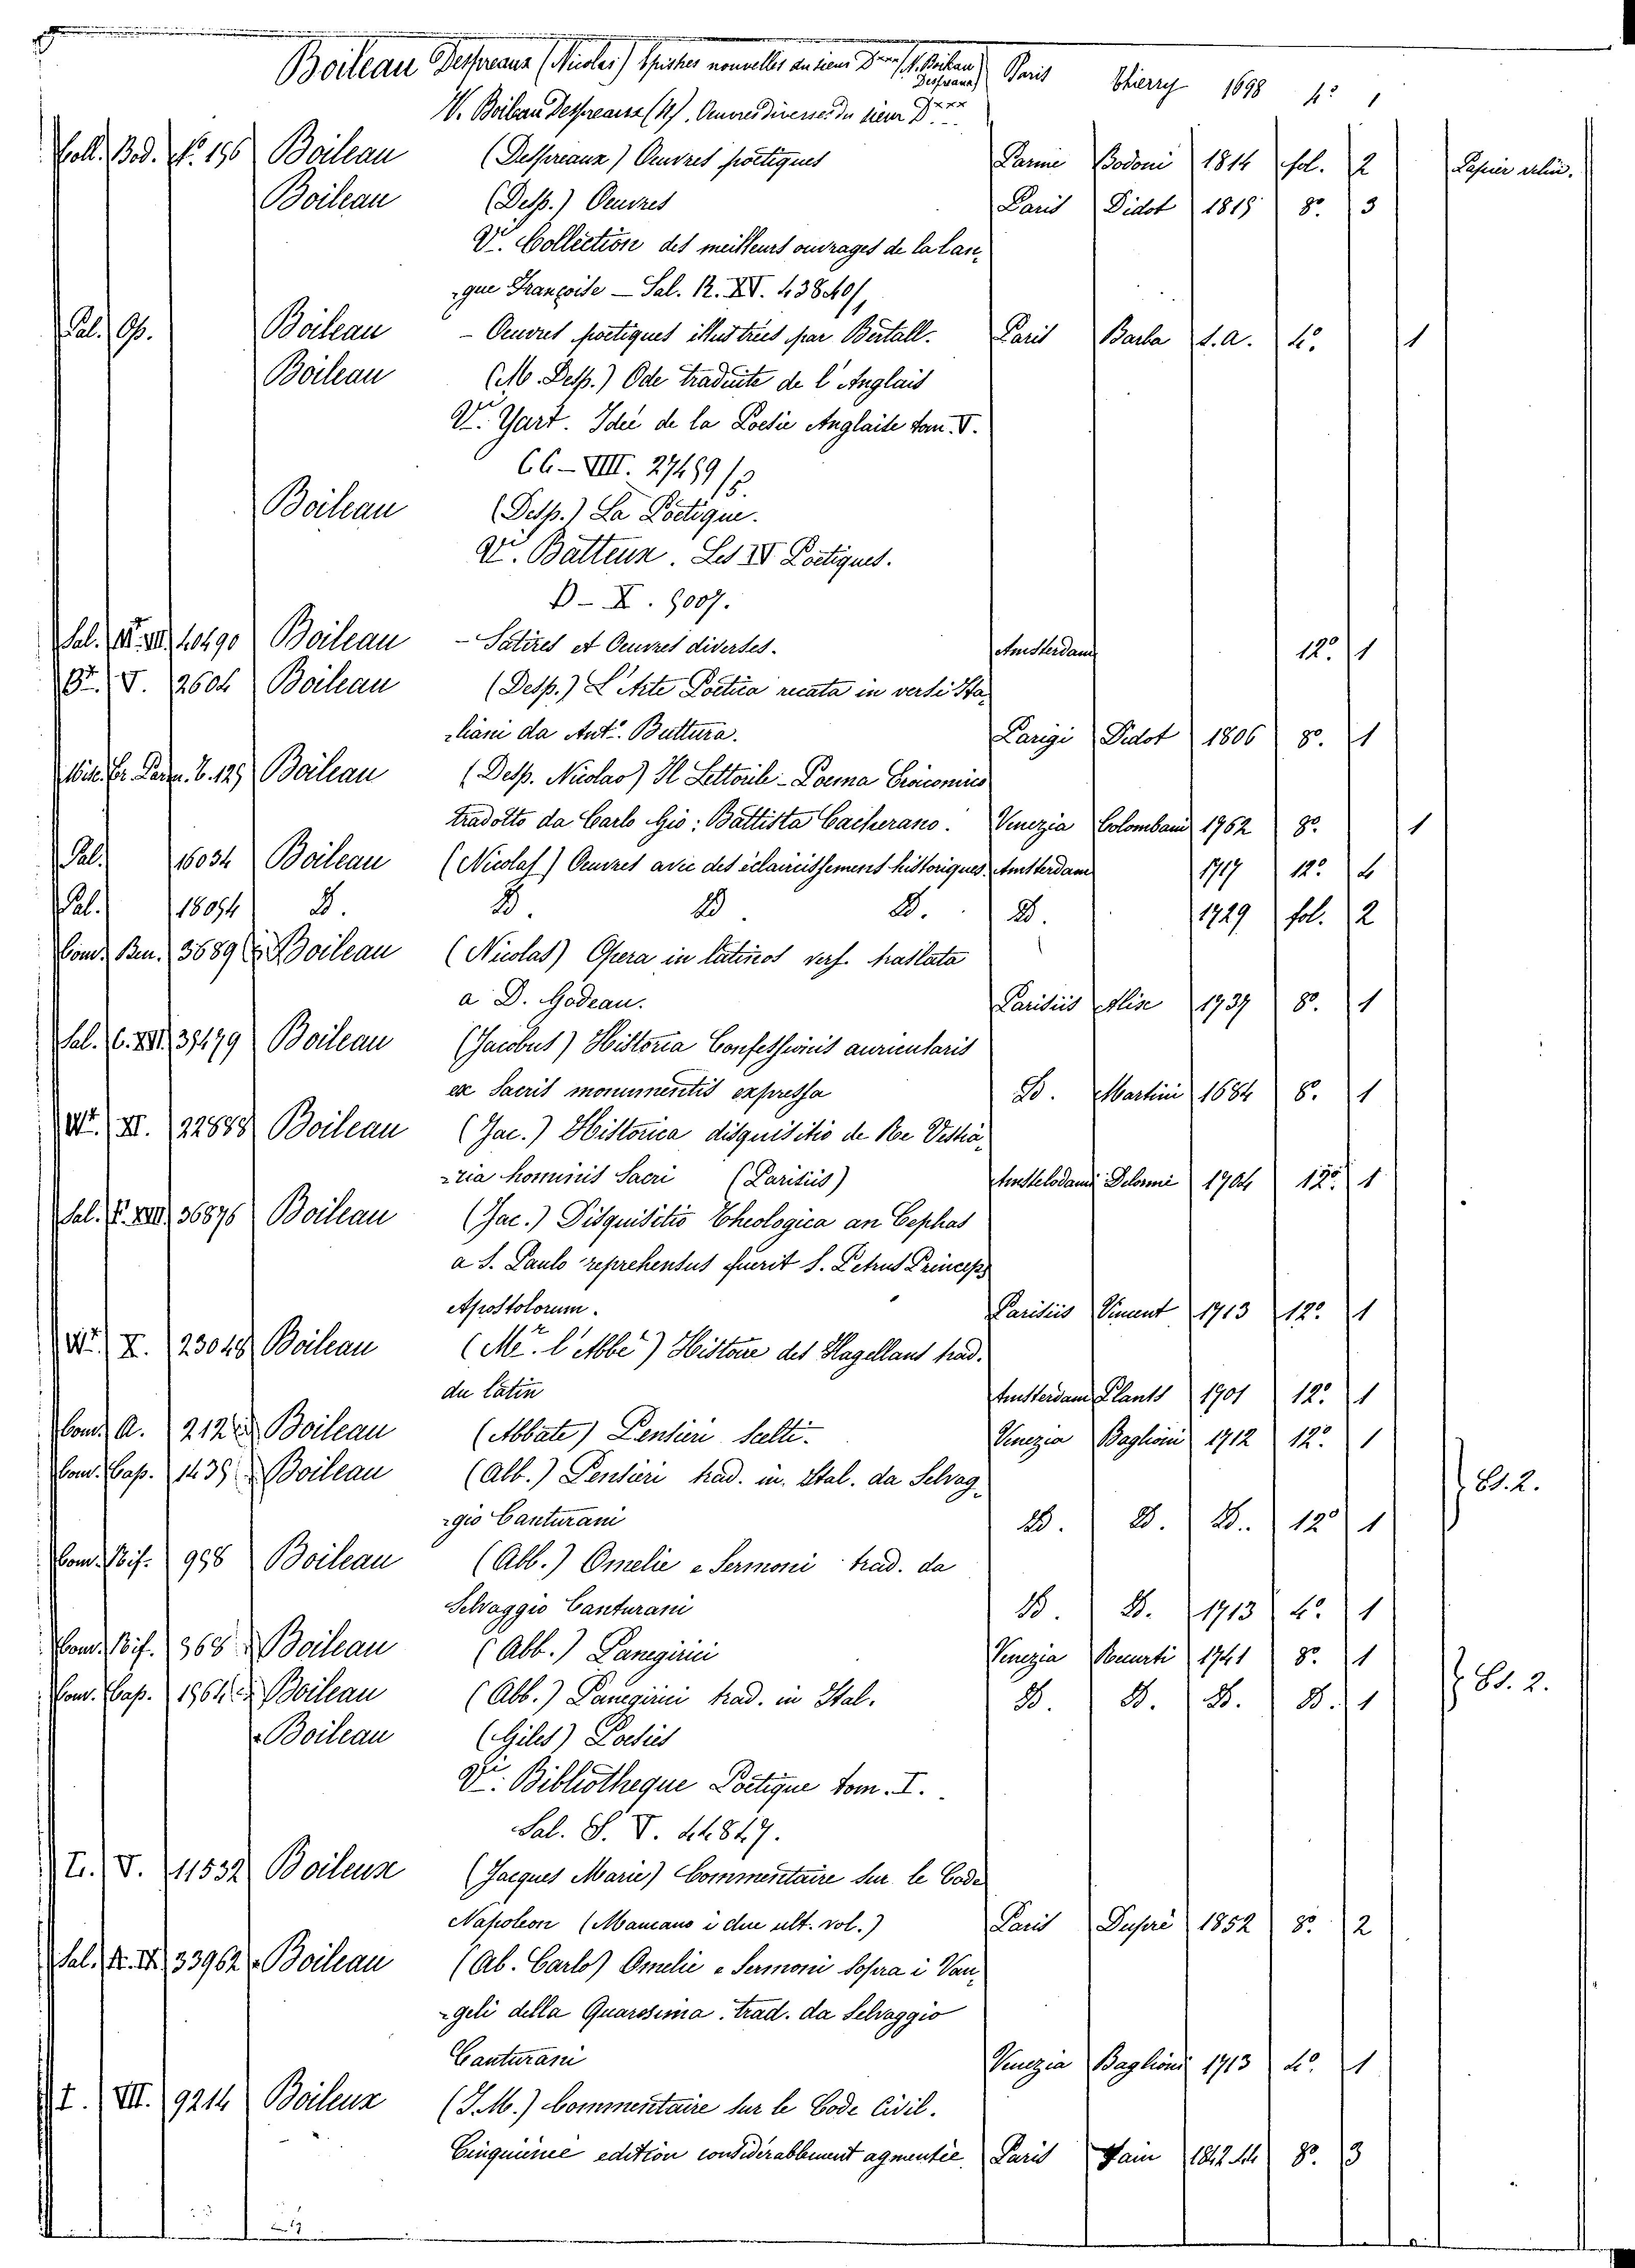 Boileau Despreaux (Nicolas) Epistres nouvelles du sieur D*** (N. Boileau Despreaux) Paris Thierry 1698 4º 1
V. Boileau Despreaux (N). Oeuvres diverses du sieur D***
Coll. Bod. Nº. 156 Boileau (Despreaux) Oeuvres poetiques Parme Bodoni 1814 fol. 2 Papier velin.
Boileau (Desp.) Oeuvres Paris Didot 1815 8º. 3
V. Collection des meilleurs ouvrages de la Lan,
-gue Françoise — Sal. R. XV. 43840/1
Pal. Op. Boileau - Oeuvres poetiques illustrées par Bertall. Paris Barba s.a. 4º. 1
Boileau (M. Desp.) Ode traduite de l'Anglais
Vi. Yart. Idée de la Poesie Anglaise tom. V.
CC — VIII. 27459/5.
Boileau (Desp.) La Poetique.
Vi. Batteux. Les IV Poetiques.
D — X. 9007.
Sal. 40490 Boileau - Satires et Oeuvres diverses. Amsterdam 12º. 1
V. 2604 Boileau (Desp.) L'Arte Poetica recata in versi Ita,
-liani da Ant. Buttura. Parigi Didot 1806 8º. 1
Boileau (Desp. Nicolao) Il Lettorile - Poema Eroicomico
tradotto da Carlo Gio: Battista Cacherano. Venezia Colombani 1762 8º 1
Pal. 16034 Boileau (Nicolas) Oeuvres avec des éclaircissemens historiques. Amsterdam 1717 12º 4
Pal. 18054 D. D. D. D. D. 1729 fol. 2
Com. Ben. 3689 Boileau (Nicolas) Opera in latinos vers. traslata
a D. Godeau. Parisiis Alise 1737 8º. 1
Sal. C. XVI. 39479 Boileau (Jacobus) Historia Confessionis auricularis
ex Sacris monumentis expressa D. Martini 1684 8º. 1
XI. 22888 Boileau (Jac.) Historica disquisitio de Re Vestia,
-ria hominis Sacri (Parisiis) Amstelodami Delorme 1704 12º. 1
Sal. 36876 Boileau (Jac.) Disquisitio Theologica an Cephas
a S. Paulo reprehensus fuerit S. Petrus Princeps
Apostolorum. Parisiis Vincent 1713 12º. 1
X. 23048 Boileau (Mr. l'Abbé) Histoire des Flagellans trad.
du latin Amsterdam Plants 1701 12º. 1
Com. A. 212 Boileau (Abbate) Pensieri Scelti. Venezia Baglioni 1712 12º. 1
Com. Cap. 1439 Boileau (Abb.) Pensieri trad. in. Ital. da Selvag,
-gio Canturani D. D. D. 12º 1 Es. 2.
Com. Rif. 958 Boileau (Abb.) Omelie e Sermoni trad. da
Selvaggio Canturani D. D. 1713 4º. 1
Com. Rif. 368 Boileau (Abb.) Panegirici Venezia Recurti 1741 8º. 1
Com. Cap. 1964 Boileau (Abb.) Panegirici trad. in Ital. D. D. D. D. 1 Es. 2.
Boileau (Giles) Poesies
Vi. Bibliotheque Poetique tom. I.
Sal. S. V. 44847.
V. 11532 Boileux (Jacques Marie) Commentaire sur le Code
Napoleon (Mancano i due ult. vol.) Paris Dupré 1852 8º. 2
Sal. 33962 Boileau (Ab. Carlo) Omelie e Sermoni sopra i Van,
-geli della Quaresima. trad. da Selvaggio
Canturani Venezia Baglioni 1713 4º. 1
I. VII. 9214 Boileux (J.M.) Commentaire sur le Code Civil.
Cinquième edition considérablement agmentée. Paris Hain 1842.44 8º. 3